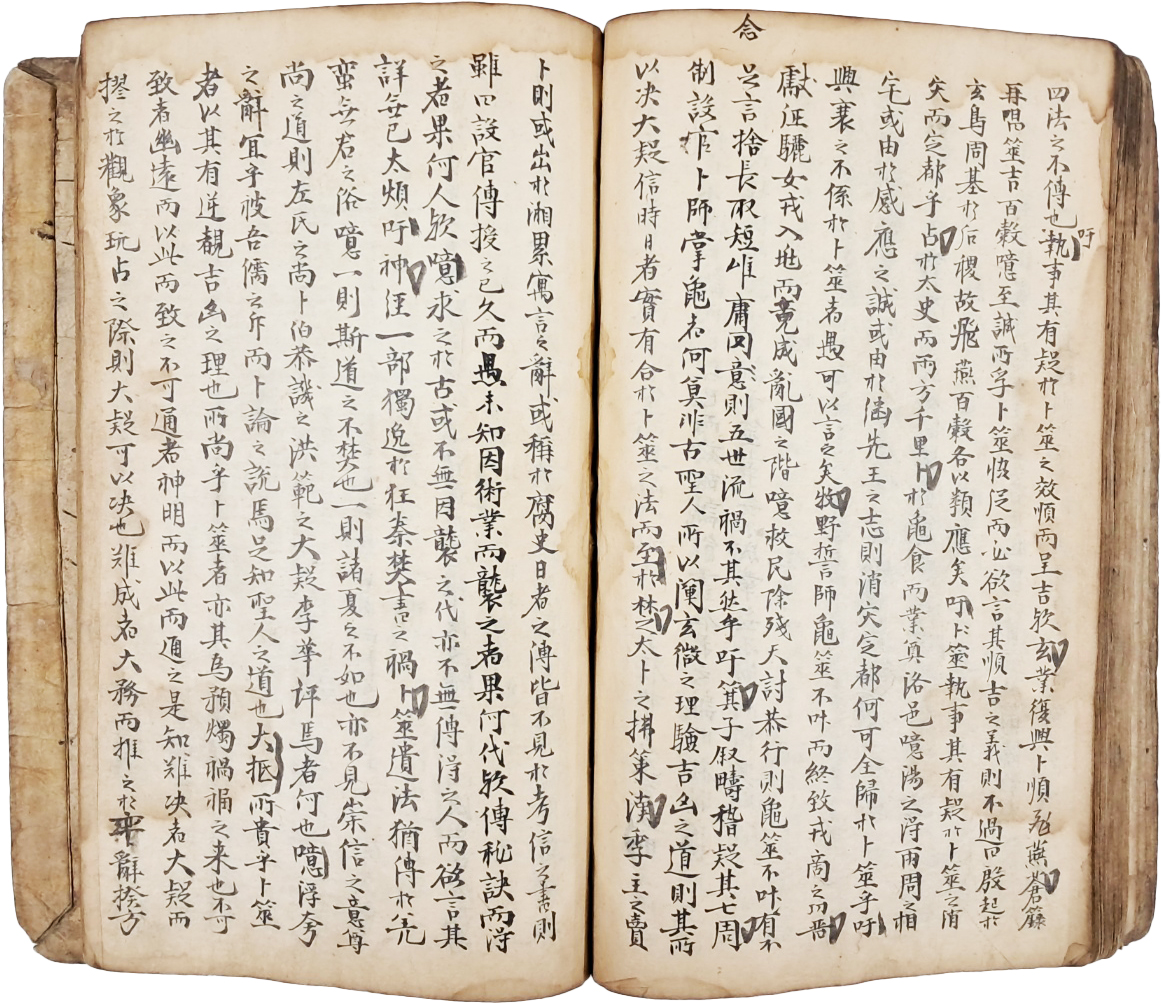 念
四法之不傳也執事其有疑於卜筮之效順而呈吉欤玄業復興卜順飛燕蒼籙
吁
再偈筮吉百穀噫至誠所孚卜筮恔是而必欲言其順吉之義則不過曰殷起於
玄鳥周基於后稷故飛燕百穀各以類應矣吁卜筮執事其有疑於卜筮之
矣而定都乎占於太史而雨方千里卜於龜食而業奠洛邑噫湯之得雨周之相
宅或由於感應之誠或由於遹先王之志則消灾定都何可全歸於卜筮乎吁
興衰之不係於卜筮者愚可以言之矣牧野誓師龜筮不叶而終致戎商之
獻征驪女戎入兆而竟成亂國之階噫救民除殘天討恭行則龜筮不叶有不
足言捨長取短雄庸罔意則五世流禍不其然乎吁箕子叙疇稽疑其七周
制設官卜師掌龜者何莫非古聖人所以闡玄微之理驗吉凶之道則其所
以决大疑信時日者實有合於卜筮之法而至於楚之太卜之拂策漢季主之賣
卜則或出於湘累寓言之辭或稱於腐史日者之傳皆不見於考信之書則
雖曰設官傳授之已久而愚未知因術業而襲之者果何代欤傳秘訣而得
之者果何人欤噫求之於古或不無因襲之代亦不無傳得之人而欲言其
詳無已太煩吁神經一部獨逸於狂秦焚書之禍卜筮遺法猶傳於羌
蛮無君之俗噫一則斯道之不焚也一則諸夏之不如也亦不見崇信之意尊
尚之道則左氏之尚卜伯恭譏之洪範之大疑李華評焉者何也噫浮夸
之辭宜乎被吾儒之斥而卜論之說焉足知聖人之道也大抵所貴乎卜筮
者以其有逆覩吉凶之理也所尚乎卜筮者亦其烏預燭禍福之来也不可
致者幽遠而以此而致之不可通者神明而以此而通之是知难决者大疑而
揲之於觀象玩占之際則大疑可以决也难成者大務而推之於辭揆方